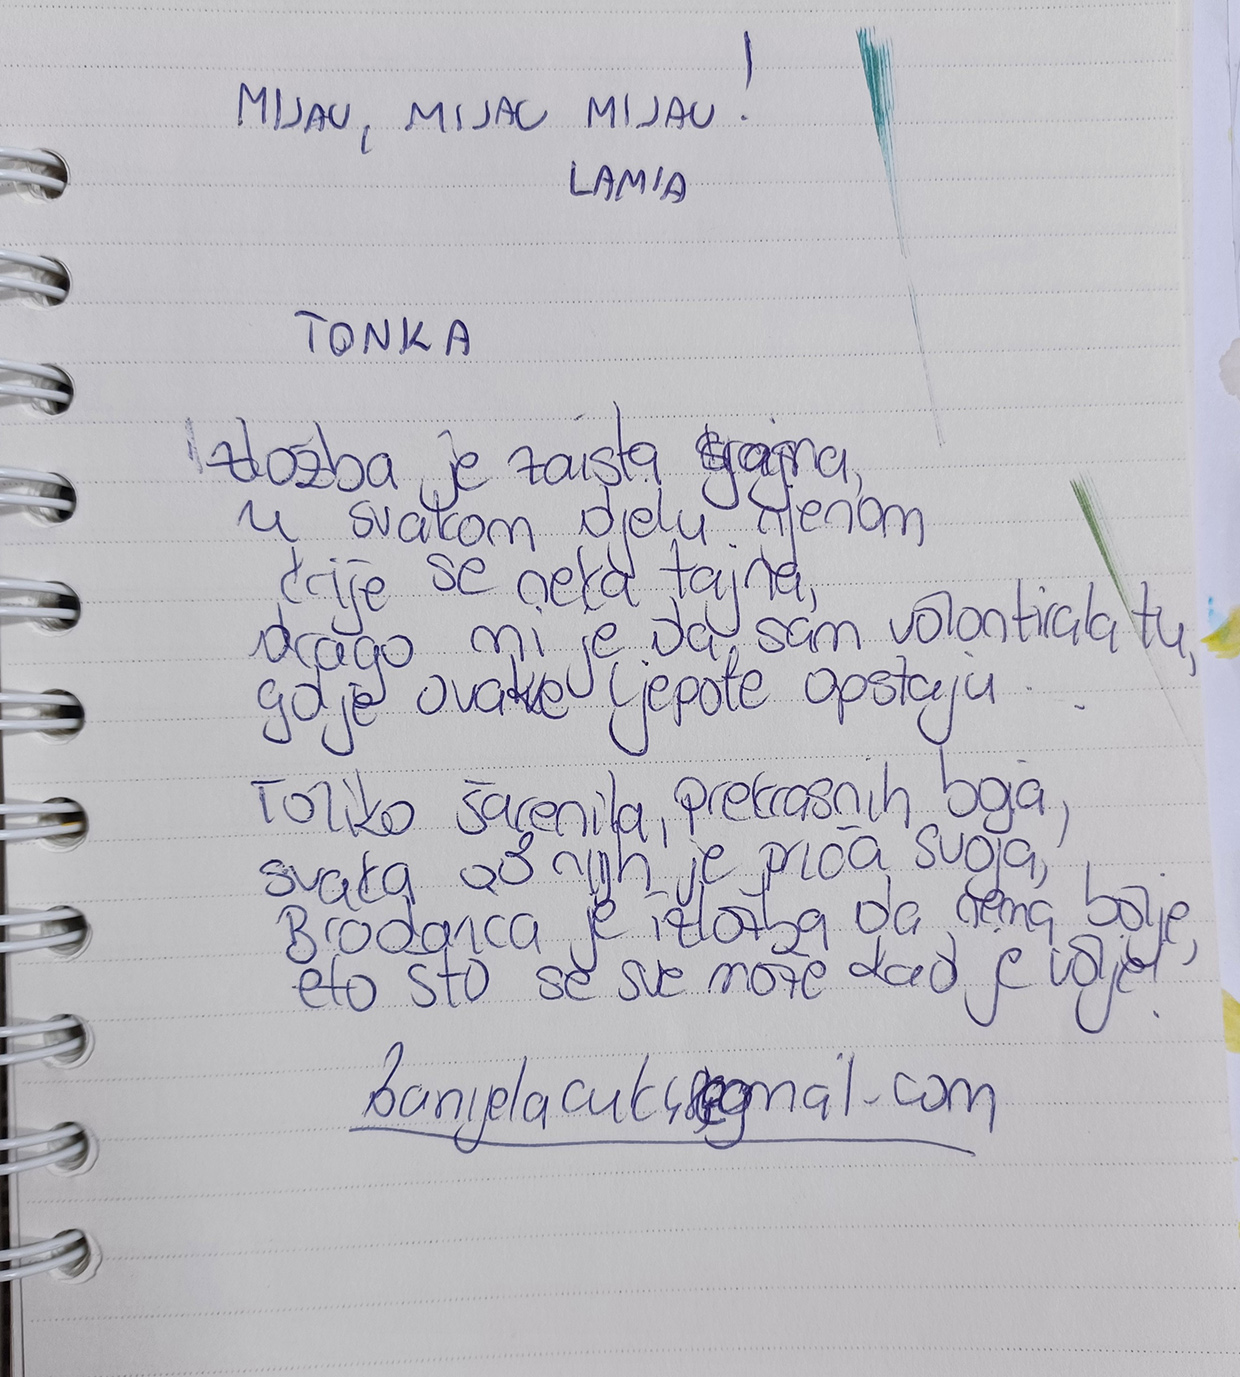 MIJAU, MIJAU MIJAU!
LAMIA
TONKA
Izložba je zaista sjajna,
u svakom djelu njenom
krije se neka tajna,
drago mi je da sam volontirala tu,
gdje ovake ljepote opstaju.
Toliko šarenila, prekrasnih boja,
svaka od njih je priča svoja,
Brodanca je izložba da nema bolje,
eto što se sve može kad je volje!